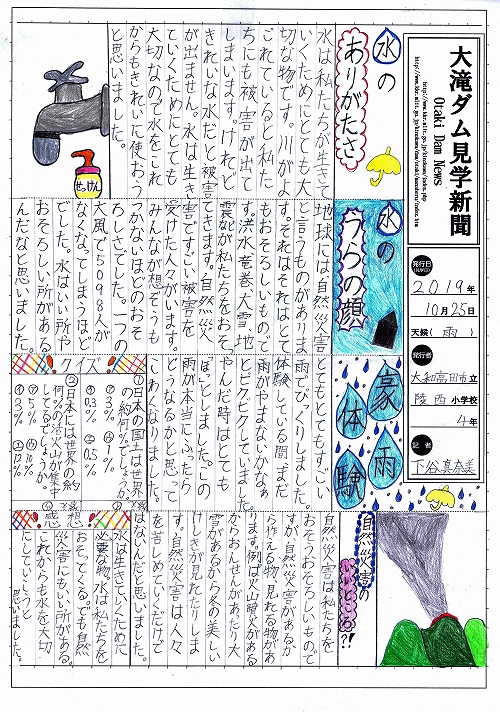 大滝ダム見学新聞
Otaki Dam News
発行日
2019年
10月25日
天候（雨）
発行者
大和高田市立
陵西小学校
4年
記者
下谷真奈美
水の
ありがたさ
水は私たちが生きて
いくためにとても大
切な物です。川がよ
ごれていると私た
ちにも被害が出て
しまいます。けれど
きれいな水だと被害
が出ません。水は生き
ていくためにとても
大切なので水をこれ
からもきれいに使おう
と思いました。
せっけん
水の
うらの顔
地球には自然災害
と言うものがありま
す。それはとて
もおそろしいもので
す。洪水竜巻大雪地
震などが私たちをおそ
ってきます。自然災
害ですごい被害を
受けた人々がいます。
みんなが想ぞうも
つかないほどのおそ
ろしさでした。一つの
大風で5098人が
なくなってしまうほど
でした。水はいい所や
おそろしい所がある
んだなと思いました。
豪雨体験
とてもとてもすごい
雨でびっくりしました。
体験している間まだ
雨がやまないかなぁ
とビクビクしていました。
やんだ時はとても
ほっとしました。この
雨が本当にふったら
どうなるかと思って
こわくなりました。
クイズ
①日本の国土は世界
の約何%でしょうか。
㋐3%
㋑1%
㋒0.3%
㋓0.5%
②日本には世界の約
何%の活火山が集中
しているでしょうか。
㋐5%
㋑10%
㋒3%
㋓17%
自然災害の
いいところ?!
自然災害は私たちを
おそうおそろしいもので
すが自然災害があるか
ら作える物見れる物があ
ります。例えば火山噴火がある
からおんせんがあたり大
雪があるから冬の美しい
けしきが見れたりしま
す。自然災害は人々
を苦しめていくだけで
はないんだと思いました。
感想
水は生きていくために
必要な物。水は私たちを
おそってくる。でも自然
災害にもいい所がある。
これからも水を大切
にしていこうと
思いました。